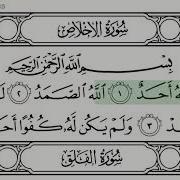 سُورَةُ الإِخْلَاصِ
بِسْمِ ٱللَّهِ ٱلرَّحْمَٰنِ ٱلرَّحِيمِ
ٱللَّهُ أَحَدٌ ١ ٱللَّهُ ٱلصَّمَدُ ٢
٣ وَلَمْ يَكُن لَّهُۥ كُفُوًا
سُورَةُ الفَلَقِ